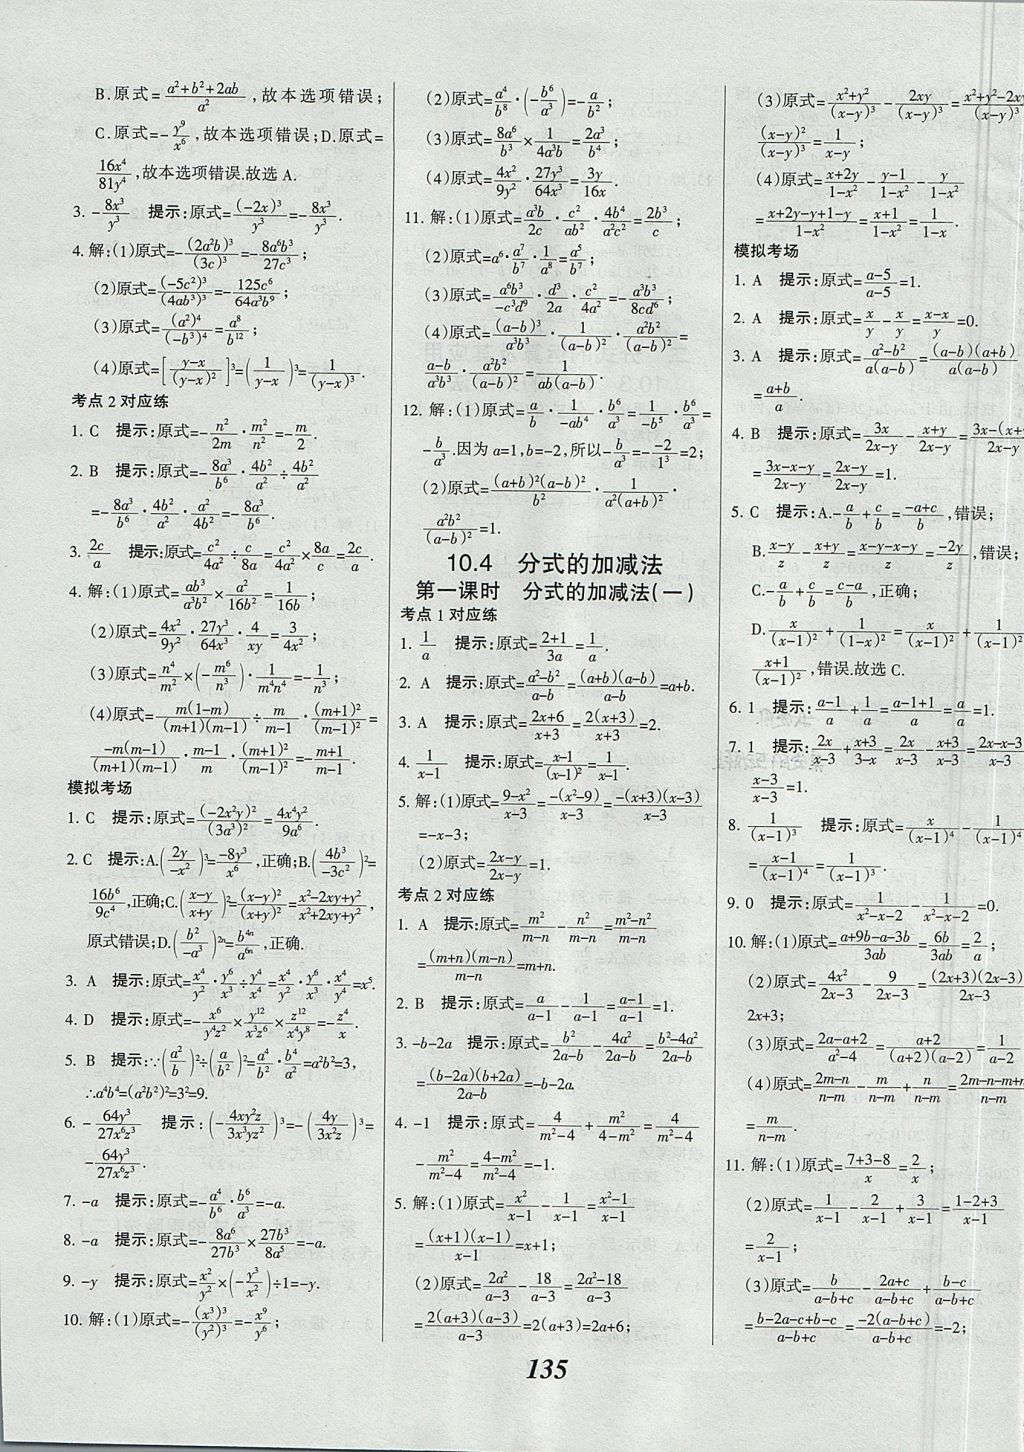 B.原式=(a²+b²+2ab)/a²,故本选项错误;
C.原式=-y⁹/x⁶,故本选项错误;D.原式=
16x⁴/81y⁴,故本选项错误.故选 A.
3. -8x³/y³ 提示:原式=(-2x)³/y³=-8x³/y³.
4. 解:(1)原式=-(2a²b)³/(3c)³=-8a⁶b³/27c³;
(2)原式=(-5c²)³/(4ab³)³=-125c⁶/64a³b⁹;
(3)原式=(a²)⁴/(-b³)⁴=a⁸/b¹²;
(4)原式=[(y-x)/(y-x)²]³=(1/(y-x))³=1/(y-x)³.
考点 2 对应练
1. C 提示:原式=-n²/2m·m²/n²=-m/2.
2. B 提示:原式=-8a³/b⁶·4b²/a²÷4b²/a²
=-8a³/b⁶·4b²/a²·a²/4b²=-8a³/b⁶.
3. 2c/a 提示:原式=c²/a⁴÷c/8a=c²/a⁴×8a/c=2c/a.
4. 解:(1)原式=ab³/a³b²·a²/16b²=1/16b;
(2)原式=4x²/9y²·27y³/64x³·4/xy=3/4x²;
(3)原式=n⁴/m²×(-m⁶/n³)·1/m⁴n⁴=-1/n³;
(4)原式=m(1-m)/(m+1)(m-1)÷m/(m-1)·(m+1)²/(m-1)²=
-m(m-1)/(m+1)(m-1)·(m-1)/m·(m+1)²/(m-1)²=-(m+1)/(m-1).
模拟考场
1. C 提示:原式=(-2x²y)²/(3a³)²=4x⁴y²/9a⁶.
2. C 提示:A.(2y/-x²)³=-8y³/x⁶,正确;B.(4b³/-3c²)²=
16b⁶/9c⁴,正确;C.((x-y)/(x+y))²=(x-y)²/(x+y)²=(x²-2xy+y²)/(x²+2xy+y²),
原式错误;D.(b²/-a³)²ⁿ=b⁴ⁿ/a⁶ⁿ,正确.
3. A 提示:原式=x⁴/y²·y⁶/x³÷y⁴/x⁴=x⁴/y²·y⁶/x³·x⁴/y⁴=x⁵.
4. D 提示:原式=-x⁶/y⁴z²×y¹²/x³z⁶×z¹²/x⁴y⁸=-z⁴/x.
5. B 提示:∵(a²/b)²÷(a/b²)²=a⁴/b²·b⁴/a²=a²b²=3,
∴a⁴b⁴=(a²b²)²=3²=9.
6. -64y³/27x⁶z³ 提示:(-4xy²z/3x³yz²)³=-(4y/3x²z)³=
-64y³/27x⁶z³.
7. -a 提示:原式=-a⁴/b⁶·b⁶/a³=-a.
8. -a 提示:原式=-8a⁶/27b³×27b³/8a⁵=-a.
9. -y 提示:原式=x²/y²×(-y³/x²)÷1=-y.
10. 解:(1)原式=-(x³)³/(y²)³=-x⁹/y⁶;
(2)原式=a⁴/b⁸·(-b⁶/a³)=-a/b²;
(3)原式=8a⁶/b³×1/4a³b=2a³/b⁴;
(4)原式=4x²/9y²·27y³/64x³=3y/16x.
11. 解:(1)原式=a³b/2c·c²/ab²·4b⁴/a²c²=2b³/c;
(2)原式=a⁶·a⁷/b⁷·1/a⁸=a⁵/b⁷;
(3)原式=a⁶b³/-c³d⁹·d³/2a·c²/4a²=-a³b³/8cd⁶;
(4)原式=(a-b)³/a³b³·1/(a-b)²·a²b²/(a-b)²=
(a-b)/a³b³·a²b²/(a-b)²=1/ab(a-b).
12. 解:(1)原式=a/b·1/-ab⁴·b⁶/a³=1/-b⁵·b⁶/a³=
-b/a³.因为 a=1,b=-2,所以-b/a³=-(-2)/1³=2;
(2)原式=(a+b)²(a-b)²/b²·1/a²(a+b)²·
a²b²/(a-b)²=1.
10.4 分式的加减法
第一课时 分式的加减法(一)
考点 1 对应练
1. 1/a 提示:原式=(2+1)/3a=1/a.
2. A 提示:原式=(a²-b²)/(a-b)=(a+b)(a-b)/(a-b)=a+b.
3. A 提示:原式=(2x+6)/(x+3)=2(x+3)/(x+3)=2.
4. 1/(x-1) 提示:原式=(x-1)/(x-1)²=1/(x-1).
5. 解:(1)原式=(9-x²)/(x-3)=-(x²-9)/(x-3)=-(x+3)(x-3)/(x-3)
=-x-3;
(2)原式=(2x-y)/(2x-y)=1.
考点 2 对应练
1. A 提示:原式=m²/(m-n)-n²/(m-n)=(m²-n²)/(m-n)
=(m+n)(m-n)/(m-n)=m+n.
2. B 提示:原式=a/(a-1)-1/(a-1)=(a-1)/(a-1)=1.
3. -b-2a 提示:原式=b²/(2a-b)-4a²/(2a-b)=(b²-4a²)/(2a-b)
=(b-2a)(b+2a)/(2a-b)=-b-2a.
4. -1 提示:原式=4/(m²-4)+m²/(4-m²)=4/(m²-4)
-m²/(m²-4)=(4-m²)/(m²-4)=-1.
5. 解:(1)原式=x²/(x-1)-1/(x-1)=(x²-1)/(x-1)
=(x+1)(x-1)/(x-1)=x+1;
(2)原式=2a²/(a-3)-18/(a-3)=(2a²-18)/(a-3)
=2(a+3)(a-3)/(a-3)=2(a+3)=2a+6;
(3)原式=(x²+y²)/(x-y)³-2xy/(x-y)³=x²+y²-2x
(x-y)²/(x-y)³=1/(x-y);
(4)原式=(x+2y)/(1-x²)-(y-1)/(1-x²)-y/(1-x²)
=(x+2y-y+1-y)/(1-x²)=(x+1)/(1-x²)=1/(1-x).
模拟考场
1. A 提示:原式=(a-5)/(a-5)=1.
2. A 提示:原式=x/y-x/y=(x-x)/y=0.
3. A 提示:原式=(a²-b²)/a(a-b)=(a-b)(a+b)/a(a-b)
=(a+b)/a.
4. B 提示:原式=3x/(2x-y)-(x+y)/(2x-y)=3x-(x+/2x-y
=(3x-x-y)/(2x-y)=(2x-y)/(2x-y)=1.
5. C 提示:A.-a/b+c/b=(-a+c)/b,错误;
B.(x-y)/z-(x+y)/z=(x-y-x-y)/z=-2y/z,错误;
C.-b/a+(1-b)/a=(1-2b)/a,正确;
D.x/(x-1)²+1/(1-x)²=x/(x-1)²+1/(x-1)
(x+1)/(x-1)²,错误.故选 C.
6. 1 提示:(a-1)/a+1/a=(a-1+1)/a=a/a=1.
7. 1 提示:2x/(x-3)+(x+3)/(3-x)=2x/(x-3)-(x+3)/(x-3)=2x-x-3/x-3
(x-3)/(x-3)=1.
8. 1/(x-1)³ 提示:原式=x/(x-1)⁴-1/(x-1)
=(x-1)/(x-1)⁴=1/(x-1)³.
9. 0 提示:原式=1/(x²-x-2)-1/(x²-x-2)=0.
10. 解:(1)原式=(a+9b-a-3b)/3ab=6b/3ab=2/a;
(2)原式=4x²/(2x-3)-9/(2x-3)=(2x+3)(2x-3)/2x-3
2x+3;
(3)原式=(2a-a+2)/(a²-4)=(a+2)/(a+2)(a-2)=1/(a-2)
(4)原式=(2m-n)/(n-m)-m/(n-m)+n/(n-m)=2m-n-m+n/n-m
=m/(n-m).
11. 解:(1)原式=(7+3-8)/x=2/x;
(2)原式=1/(x-1)-2/(x-1)+3/(x-1)=(1-2+3)/(x-1)
=2/(x-1);
(3)原式=b/(a-b+c)-(2a+c)/(a-b+c)+(b-c)/(a-b+c)
=(b-2a-c+b-c)/(a-b+c)=-2(a-b+c)/(a-b+c)=-2;
135